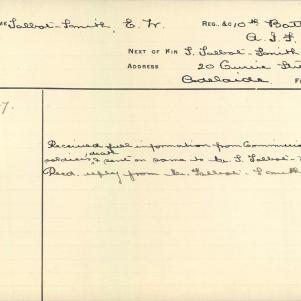 ME Talbot-Smith, E. W. REG. &C 10th Batt
A.I.F.
NEXT OF KIN S. Talbot-Smith
ADDRESS 20 Currie Stre
Adelaide F
7.
Received full information from Commissi
soldiers death & sent on same to Mr. S. Talbot-
Recd. reply from Mr. Talbot-Smith